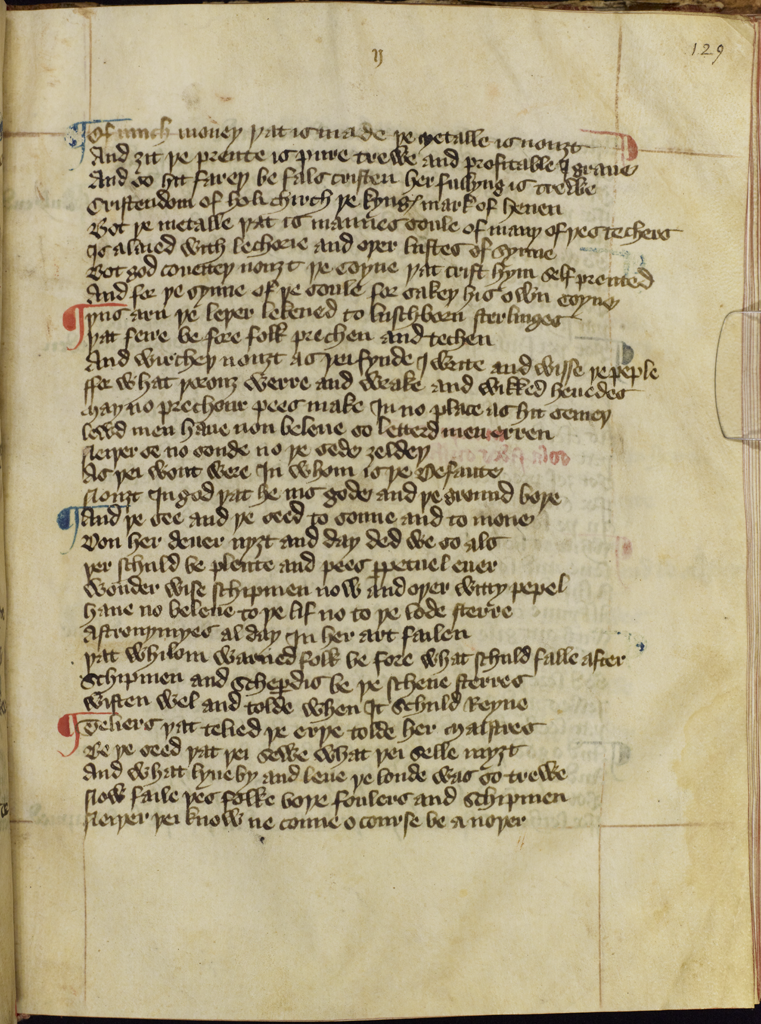 y
129
Of mich money þat is made þe metalle is nouȝt
And ȝit þe prente is pure trewe and profitable I graue
And so hit fareþ be fals cristen her fullyng is trewe
Cristendom of holi chirch þe kyng mark of heuen
Bot þe metalle þat is mannes soule of many of þes techers
Is alaied with lechorie and oþer lustes of synne
Bot god coueiteþ nouȝt þe coyne þat crist hym self prented
And for þe synne of þe soule for sakeþ his owyn coyne
Þus arn þe leþer lekened to luschborn sterlinges
Þat feire be fore folk prechen and techen
And wircheþ nouȝt as þei fynde I write and wisse þe peple
ffor what þorouȝ werre and wrake and wikked heuedes
May no prechour pees make In no place as hit semeþ
lewd men haue non beleue so letterd men erren
Neiþer se no sonde no þe sede ȝeldeþ
As þei wont were In whom is þe defaute
Nouȝt In god þat he nis gode and þe ground boþe
And þe see and þe seed to sonne and to mone
Don her deuer nyȝt and day ded we so als
Þer schuld be plente and pees perpetuel euer
Wonder wise schipmen now and oþer witty pepel
Haue no beleue to þe lif no to þe lode sterre
Astronymyes al day In her art failen
Þat whilom warned folk be fore what schuld falle after
Schipmen and Scheperdis be þe schene sterres
Wisten wel and tolde when It schuld Reyne
Teliers þat telied þe erþe tolde her Maistres
Be þe seed þat þei sewe what þei selle myȝt
And what lyue by and leue þe londe was so trewe
Now faile þes folke boþe foulers and Schipmen
Neiþer þei know ne conne o course be a noþer